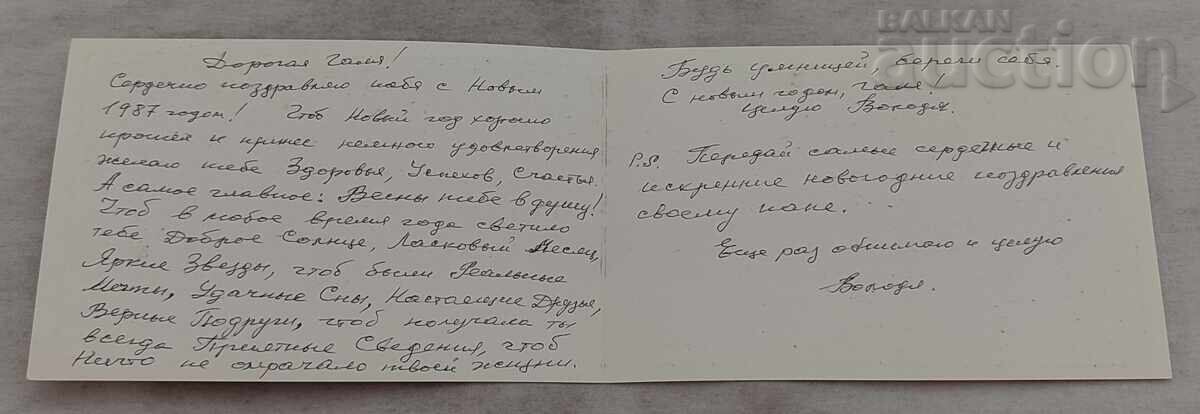 Дорогая Галя!
Сердечно поздравляю тебя с Новым
1987 годом! Чтоб Новый год хорошо
прошёл и принёс немного удовлетворения
желаю тебе Здоровья, Успехов, Счастья.
А самое главное: Весны тебе в душу!
Чтоб в любое время года светило
тебе Доброе Солнце, Ласковый Месяц,
Яркие Звезды, чтоб были Реальные
Мечты, Удачные Сны, Настаещие Друзья,
Верные Подруги, чтоб получала ты
всегда Приятные Сведения, чтоб
Ничто не омрачало твоей жизни.
Будь умницей, береги себя.
С новым годом, Галя!
Целую Володя.
P.S. Передай самые сердечные и
искренние новогодние поздравления
своему папе.
Еще раз обнимаю и целую
Володя.
BALKAN
auction